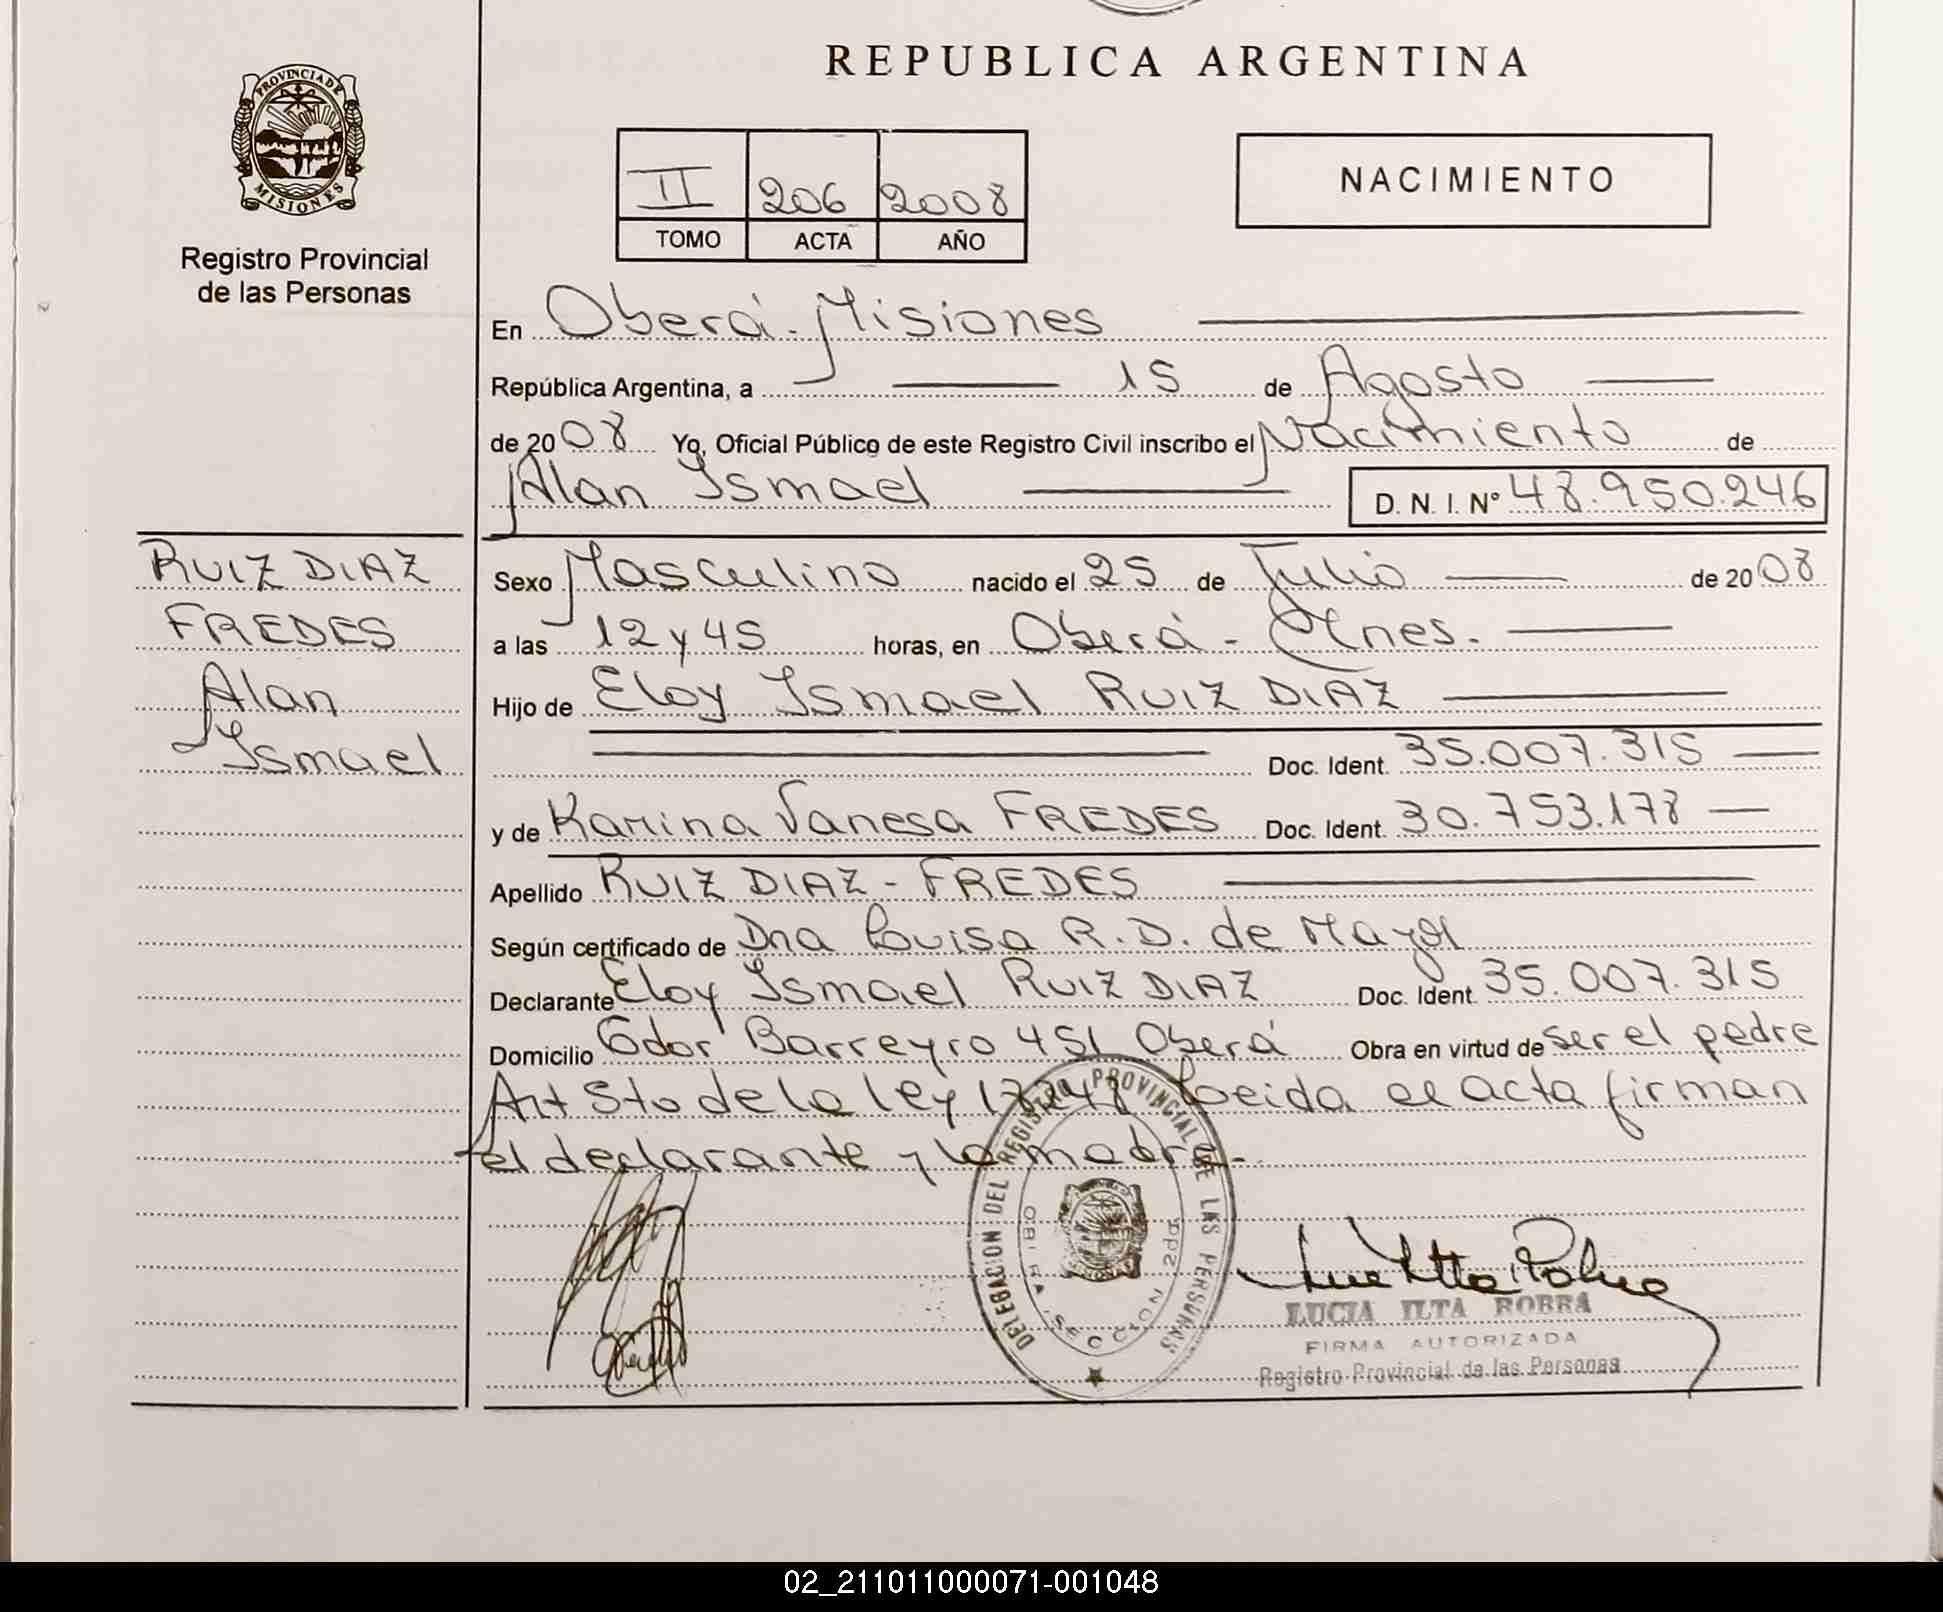 REPUBLICA ARGENTINA
PROVINCIA DE
MISIONES
Registro Provincial
de las Personas
II 206 2008
TOMO ACTA AÑO
NACIMIENTO
En Oberá - Misiones
República Argentina, a 15 de Agosto
de 2008 Yo, Oficial Público de este Registro Civil inscribo el Nacimiento de
Alan Ismael D. N. I. Nº 48.950.246
RUIZ DIAZ
FREDES
Alan
Ismael
Sexo Masculino nacido el 25 de Julio de 2008
a las 12 y 45 horas, en Oberá - Mnes.
Hijo de Eloy Ismael RUIZ DIAZ
Doc. Ident. 35.007.315
y de Karina Vanesa FREDES Doc. Ident. 30.753.178
Apellido RUIZ DIAZ - FREDES
Según certificado de Dna Louisa R.D. de Mayol
Declarante Eloy Ismael RUIZ DIAZ Doc. Ident. 35.007.315
Domicilio Gdor Barreyro 451 Oberá Obra en virtud de ser el padre
Art 5to de la ley 17248 Leida el acta firman
el declarante y la madre.-
DELEGACION DEL REGISTRO PROVINCIAL DE LAS PERSONAS
SECCION 2da
LUCIA ILTA ROBRA
FIRMA AUTORIZADA
Registro Provincial de las Personas
02_211011000071-001048